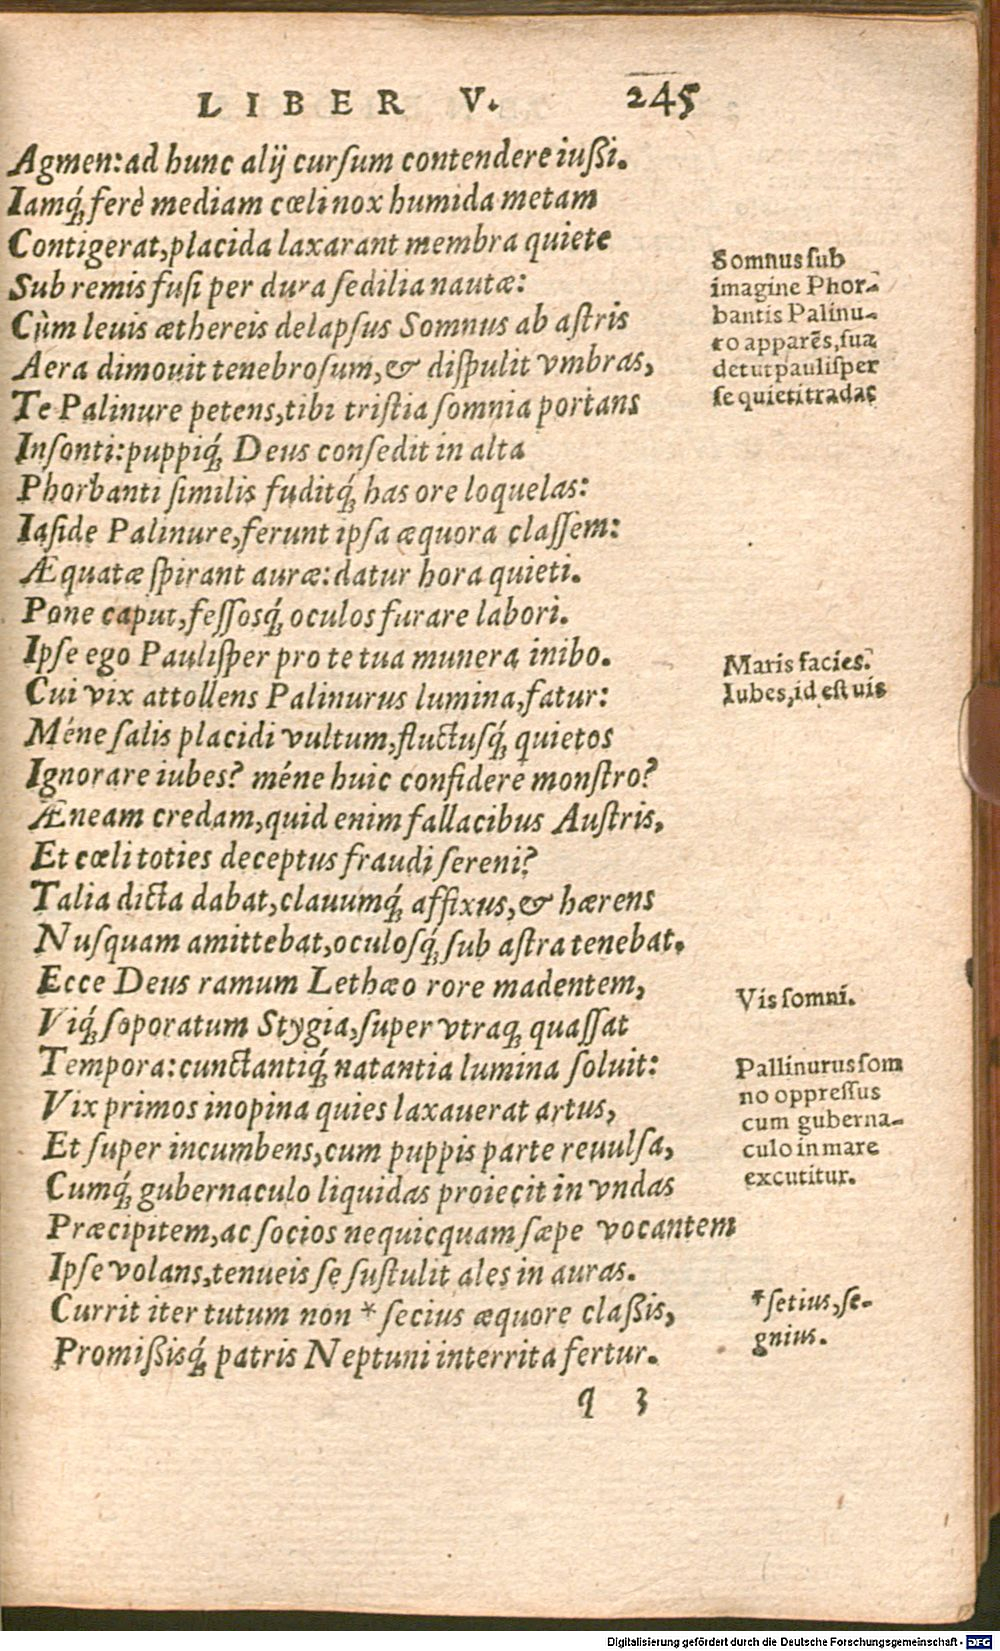 LIBER V. 245
Agmen: ad hunc alij curſum contendere iußi.
Iamq́; ferè mediam cœli nox humida metam
Contigerat, placida laxarant membra quiete
Sub remis fuſi per dura ſedilia nautæ:
Cùm leuis æthereis delapſus Somnus ab aſtris
Aera dimouit tenebroſum, & diſpulit vmbras,
Te Palinure petens, tibi triſtia ſomnia portans
Inſonti: puppiq́; Deus conſedit in alta
Phorbanti ſimilis fuditq́; has ore loquelas:
Iaſide Palinure, ferunt ipſa æquora claſſem:
Æquatæ ſpirant auræ: datur hora quieti.
Pone caput, feſſosq́; oculos furare labori.
Ipſe ego Pauliſper pro te tua munera inibo.
Cui vix attollens Palinurus lumina, fatur:
Méne ſalis placidi vultum, fluctusq́; quietos
Ignorare iubes? méne huic confidere monſtro?
Æneam credam, quid enim fallacibus Auſtris,
Et cœli toties deceptus fraudi ſereni?
Talia dicta dabat, clauumq́; affixus, & hærens
Nuſquam amittebat, oculoſq́; ſub aſtra tenebat.
Ecce Deus ramum Lethæo rore madentem,
Viq́; ſoporatum Stygia, ſuper vtraq; quaſſat
Tempora: cunctantiq́; natantia lumina ſoluit:
Vix primos inopina quies laxauerat artus,
Et ſuper incumbens, cum puppis parte reuulſa,
Cumq́; gubernaculo liquidas proiecit in vndas
Præcipitem, ac ſocios nequicquam ſæpe vocantem
Ipſe volans, tenueis ſe ſuſtulit ales in auras.
Currit iter tutum non * ſecius æquore claßis,
Promißisq́; patris Neptuni interrita fertur.
q 3
Somnus ſub
imagine Phor-
bantis Palinu-
ro apparẽs, ſua
det ut pauliſper
ſe quieti tradat
Maris facies.
Iubes, id eſt uis
Vis ſomni.
Pallinurus ſom
no oppreſſus
cum guberna-
culo in mare
excutitur.
*ſetius, ſe-
gnius.
Digitalisierung gefördert durch die Deutsche Forschungsgemeinschaft - DFG